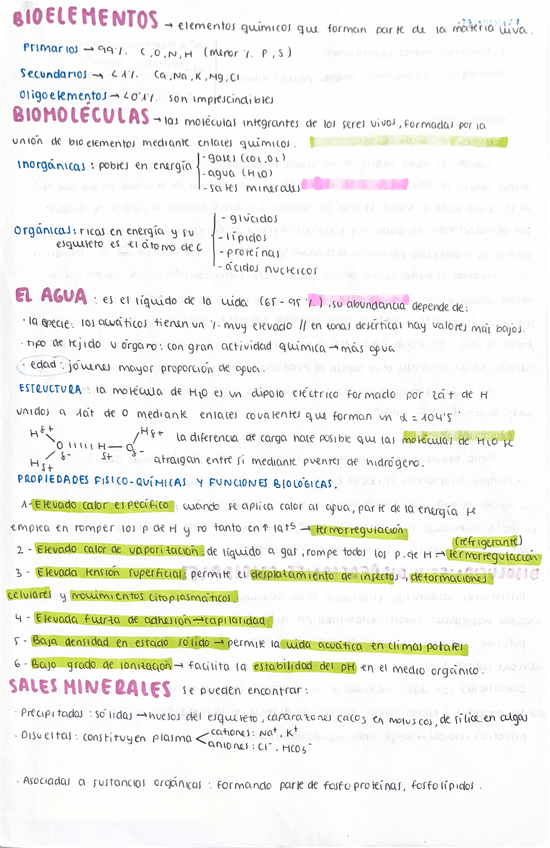 BIOELEMENTOS → elementos químicos que forman parte de la materia viva.
Primarios → 99%. C,O,N,H (menor %. P,S)
Secundarios → <1%. Ca,Na,K,Mg,Cl
Oligoelementos → <0'1% son imprescindibles
BIOMOLÉCULAS → las moléculas integrantes de los seres vivos, formadas por la
unión de bioelementos mediante enlaces químicos.
Inorgánicas: pobres en energía
- gases (CO2, O2)
- agua (H2O)
- sales minerales
Orgánicas: ricas en energía y su
esqueleto es el átomo de C
- glúcidos
- lípidos
- proteínas
- ácidos nucleicos
EL AGUA: es el líquido de la vida (65-95 %.) su abundancia depende de:
· la especie: los acuáticos tienen un %. muy elevado // en zonas desérticas hay valores más bajos.
· tipo de tejido u órgano: con gran actividad química → más agua
· edad: jóvenes mayor proporción de agua.
ESTRUCTURA: la molécula de H2O es un dipolo eléctrico formado por 2át de H
unidos a 1át de O mediante enlaces covalentes que forman un α = 104'5°
Hδ+ Hδ+ O δ- H δ+ O δ- Hδ+
la diferencia de carga hace posible que las moléculas de H2O se
atraigan entre sí mediante puentes de hidrógeno.
PROPIEDADES FISICO-QUÍMICAS Y FUNCIONES BIOLÓGICAS.
1- Elevado calor específico: cuando se aplica calor al agua, parte de la energía se
emplea en romper los p de H y no tanto en ↑ la tª → termorregulación
(refrigerante)
2- Elevado calor de vaporización: de líquido a gas, rompe todos los p. de H → termorregulación
3- Elevada tensión superficial: permite el desplazamiento de insectos, deformaciones
celulares y movimientos citoplasmáticos.
4- Elevada fuerza de adhesión → capilaridad
5- Baja densidad en estado sólido → permite la vida acuática en climas polares
6- Bajo grado de ionización → facilita la estabilidad del pH en el medio orgánico.
SALES MINERALES se pueden encontrar:
· Precipitadas: sólidas → huesos del esqueleto, caparazones CaCO3 en moluscos, de sílice en algas
· Disueltas: constituyen plasma
cationes: Na+, K+
aniones: Cl-, HCO3-
· Asociadas a sustancias orgánicas: formando parte de fosfoproteínas, fosfolípidos.